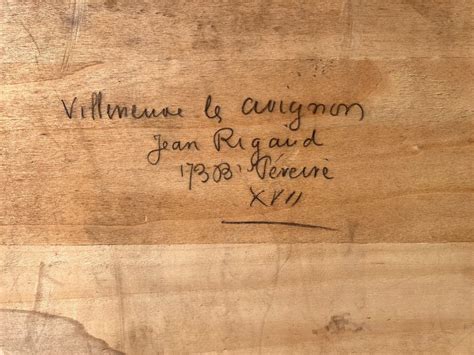 Villeneuve les avignon
Jean Rigaud
173 Bd Péreire
XVII